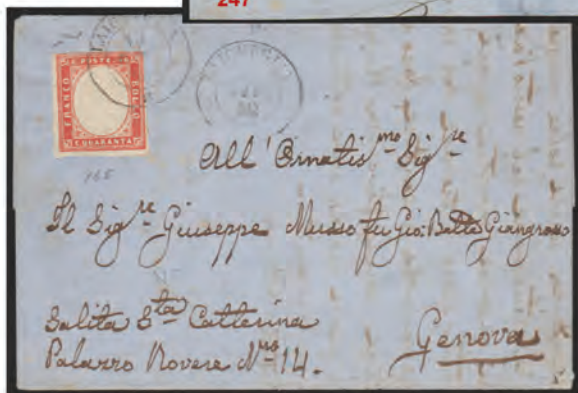 247
C. POSTE
FRANCO
BOLLO
C. QUARANTA
165
All' Ornatis.mo Sig.re
Il Sig.re Giuseppe Musso fu Gio: Batta Giangrosso
Salita S.ta Catterina
Palazzo Rovere N.ro 14.
Genova